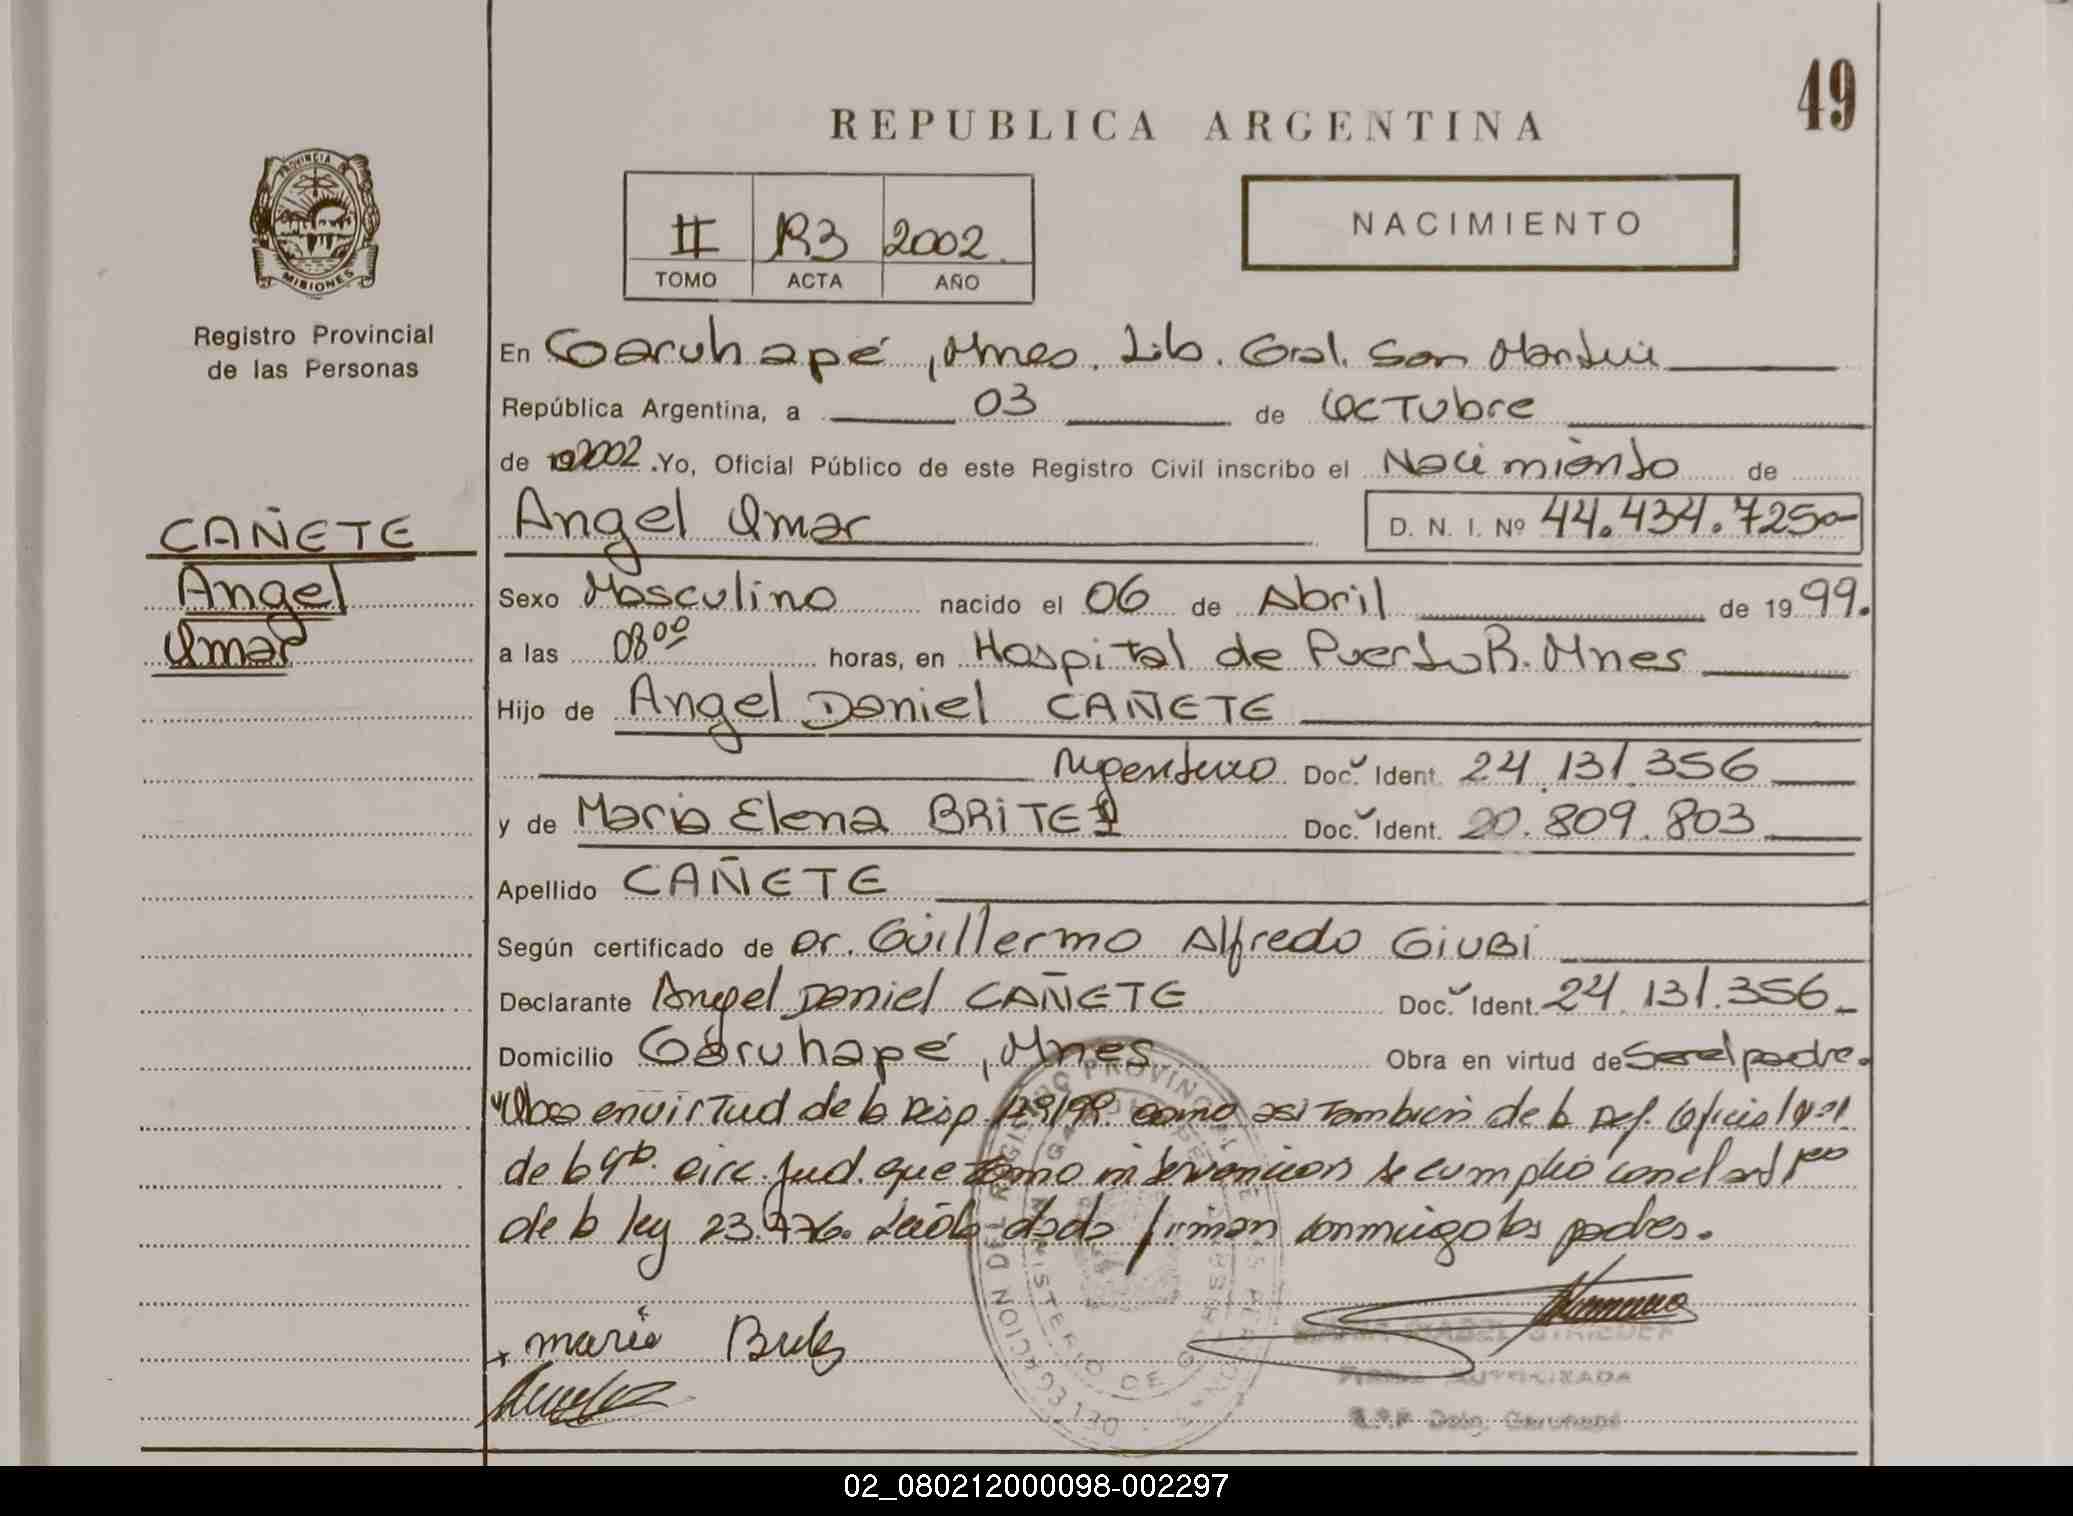 49
REPUBLICA ARGENTINA
PROVINCIA DE
MISIONES
II R3 2002
TOMO ACTA AÑO
NACIMIENTO
Registro Provincial
de las Personas
En Garuhapé, Mnes. Lib. Gral. San Martin
República Argentina, a 03 de Octubre
de 2002. Yo, Oficial Público de este Registro Civil inscribo el Nacimiento de
CAÑETE
Angel
Omar
Angel Omar D. N. I. Nº 44.434.725
Sexo Masculino nacido el 06 de Abril de 1999.
a las 08⁰⁰ horas, en Hospital de Puerto R. Mnes
Hijo de Angel Daniel CAÑETE
Argentino Doc. Ident. 24.131.356
y de Maria Elena BRITEZ Doc. Ident. 20.809.803
Apellido CAÑETE
Según certificado de Dr. Guillermo Alfredo GIUBI
Declarante Angel Daniel CAÑETE Doc. Ident. 24.131.356
Domicilio Garuhapé, Mnes Obra en virtud de Ser el padre.
"Obra en virtud de la Disp. como asi tambien de la Def. Oficial
de la 4ta. circ. Jud. que tomo intervencion se cumplio con el art 1ro
de la ley 23.776. Leida dada firman conmigo los padres.
maria Britez
FIRMA AUTORIZADA
Deleg. Garuhapé
DIRECCION DEL REGISTRO PROVINCIAL DE LAS PERSONAS
MINISTERIO DE GOBIERNO
02_080212000098-002297